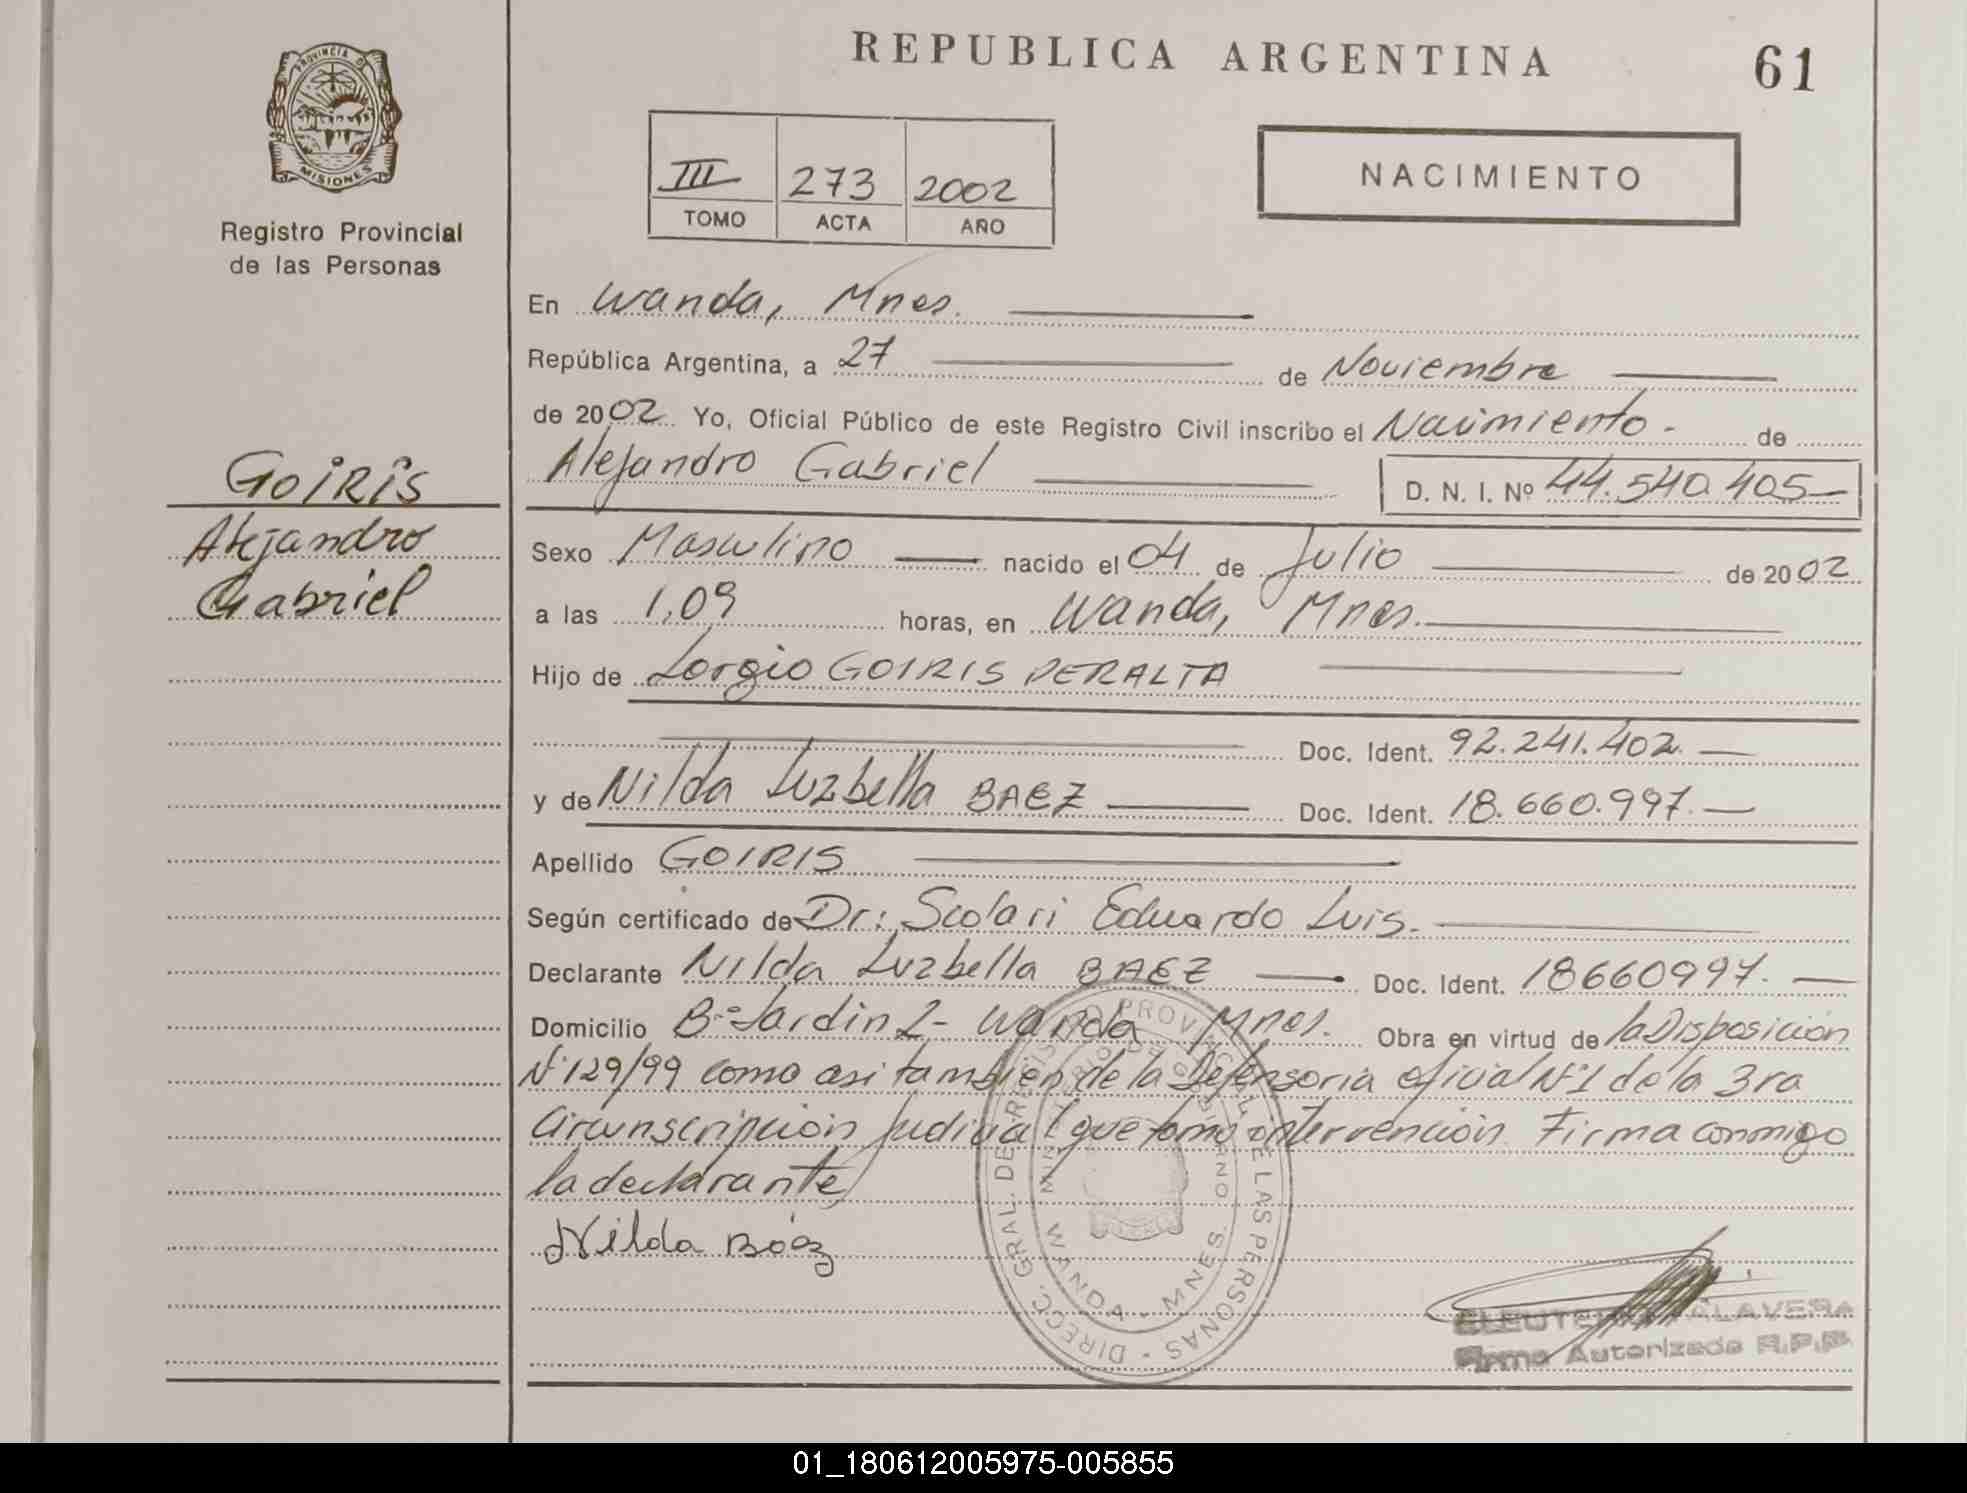 PROVINCIA DE
MISIONES
Registro Provincial
de las Personas
GOIRIS
Alejandro
Gabriel
REPUBLICA ARGENTINA
61
III 273 2002
TOMO ACTA AÑO
NACIMIENTO
En Wanda, Mnes.
República Argentina, a 27 de Noviembre
de 2002 Yo, Oficial Público de este Registro Civil inscribo el Nacimiento - de
Alejandro Gabriel D. N. I. Nº 44.540.405
Sexo Masculino nacido el 04 de Julio de 2002
a las 1,09 horas, en Wanda, Mnes.
Hijo de Lorgio GOIRIS PERALTA
Doc. Ident. 92.241.402.
y de Nilda Luzbella BAEZ Doc. Ident. 18.660.997.
Apellido GOIRIS
Según certificado de Dr: Scolari Eduardo Luis.
Declarante Nilda Luzbella BAEZ Doc. Ident. 18660997.
Domicilio Bº Jardin 2 - Wanda Mnes. Obra en virtud de la Disposición
Nº 129/99 como asi tambien de la Defensoria oficial Nº1 de la 3ra
Circunscripción Judicial que tomo intervención. Firma conmigo
la declarante
Nilda Báez
DIRECC. GRAL. DE REGISTRO PROVINCIAL DE LAS PERSONAS
MINISTERIO DE GOBIERNO
WANDA - MNES.
ELEUTERIO TALAVERA
Firma Autorizada R.P.P.
01_180612005975-005855